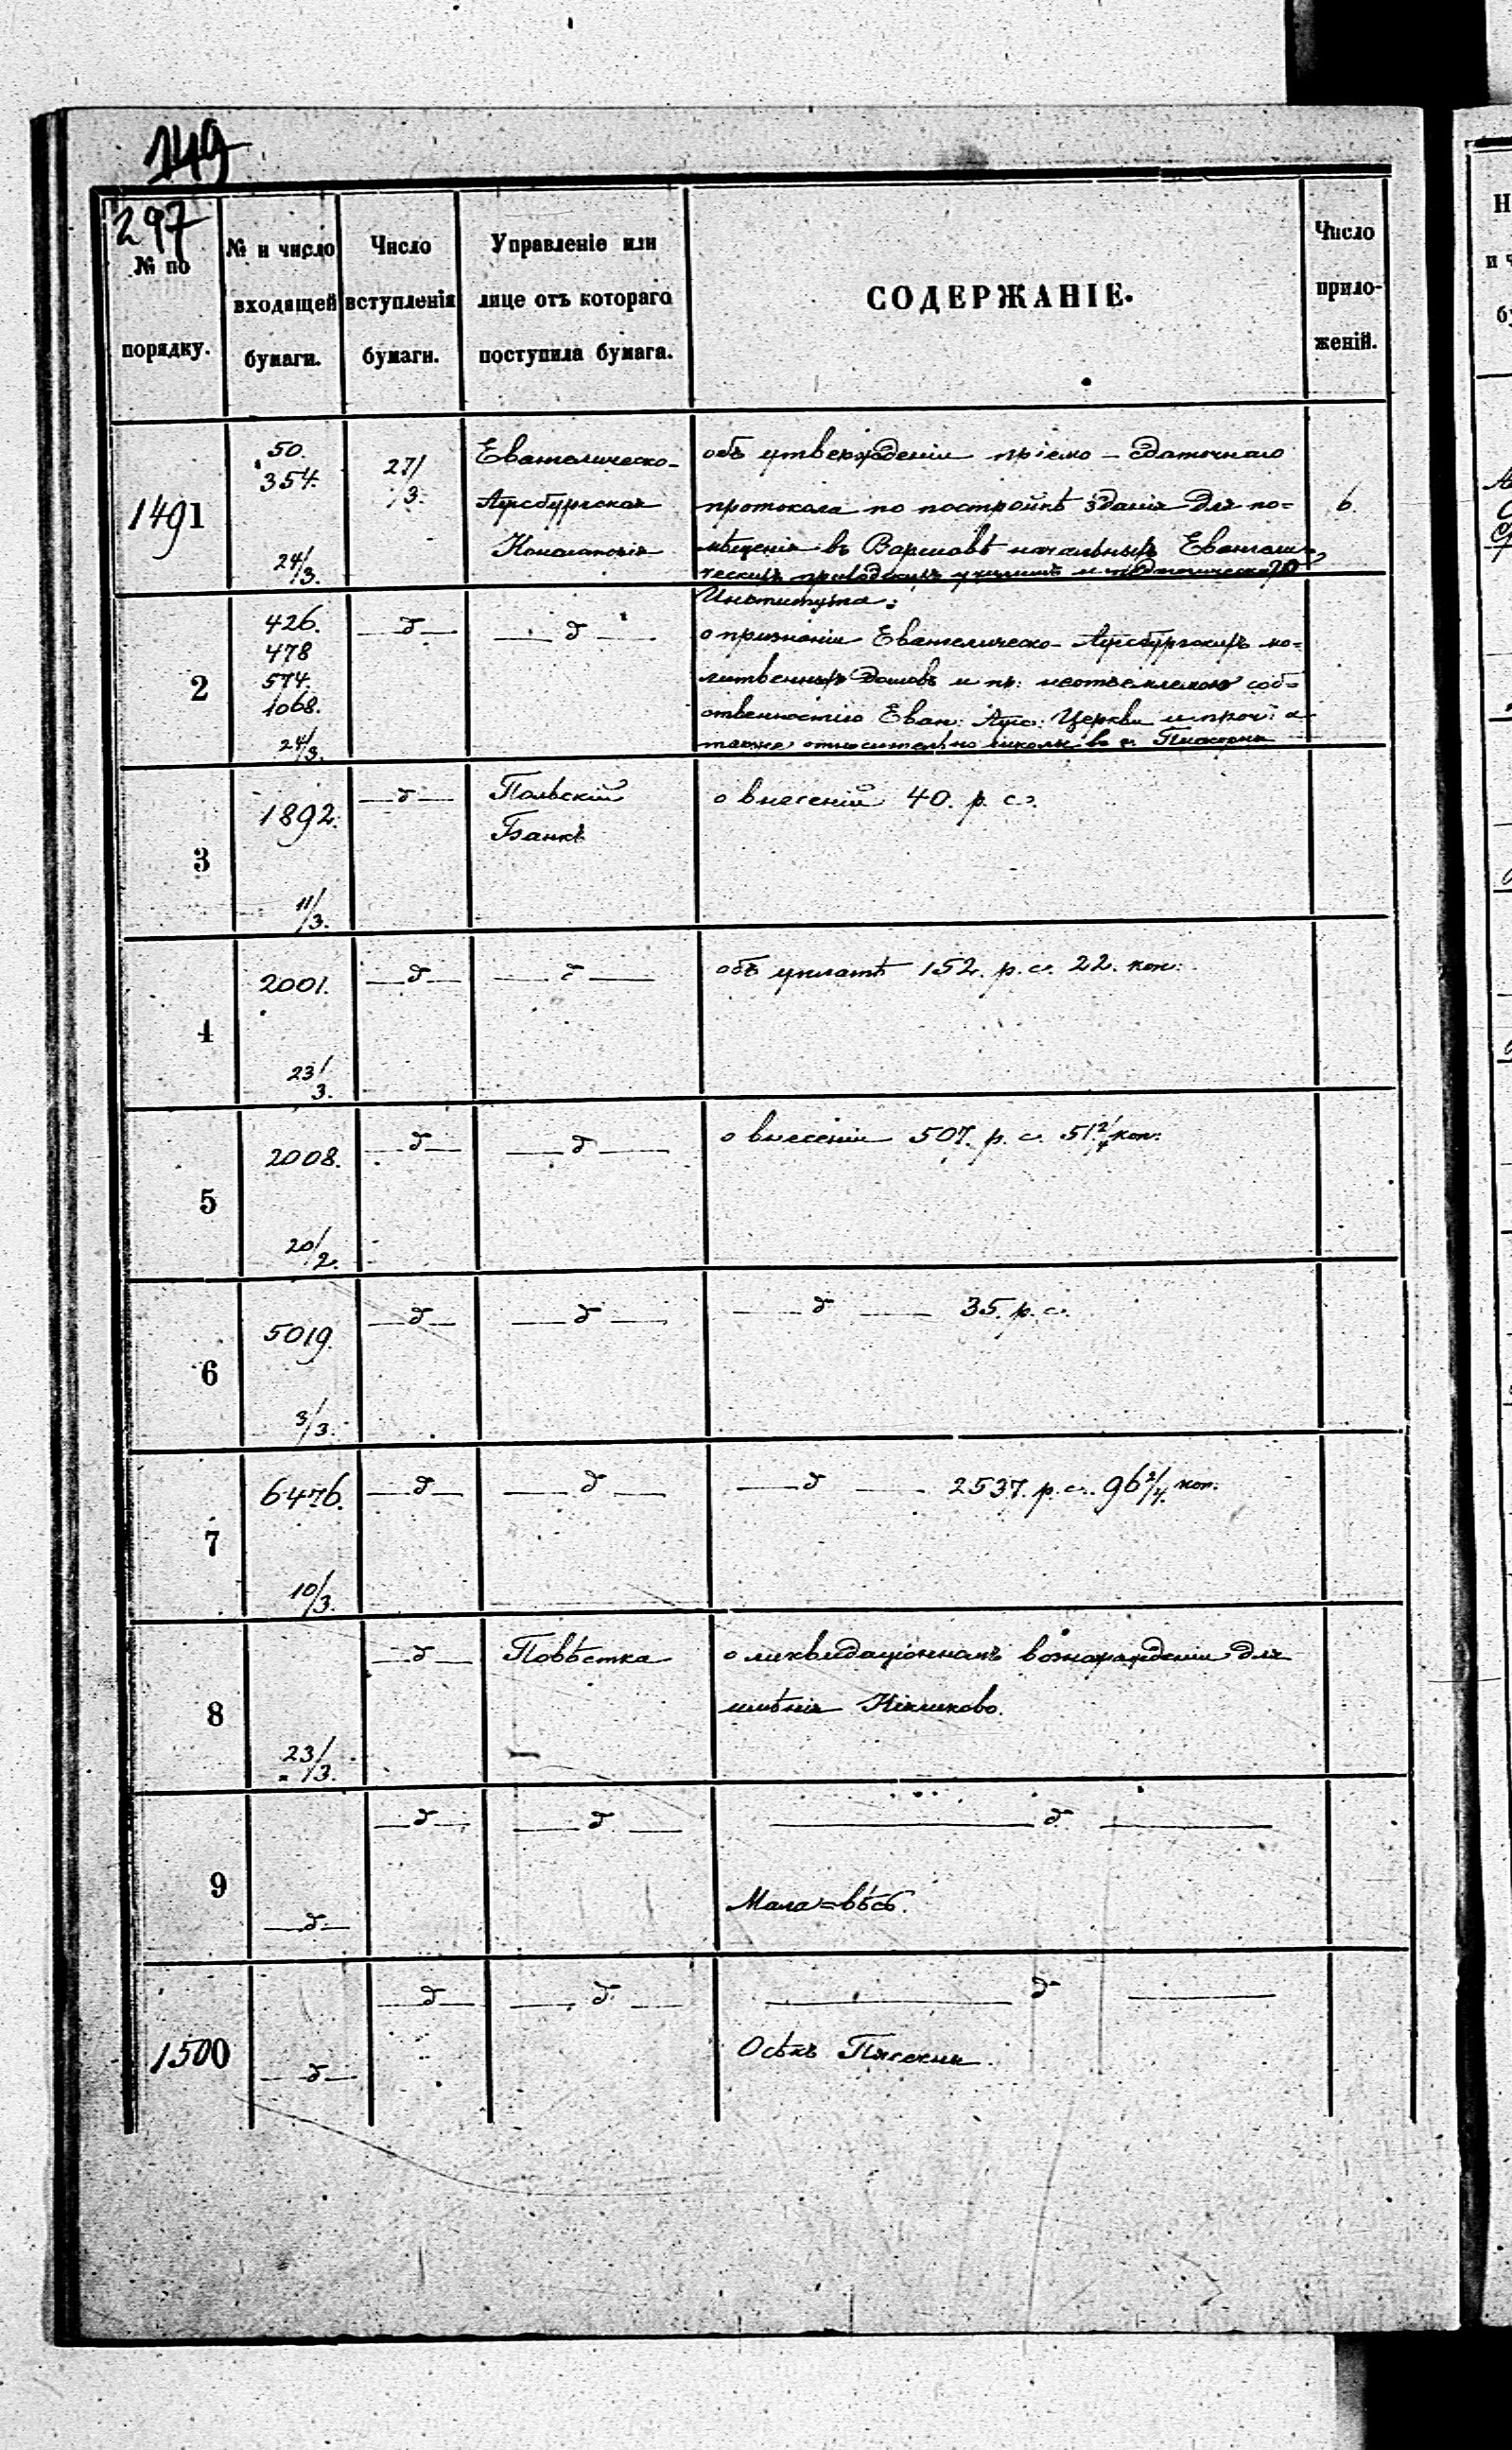 149
297
№ по порядку.
№ и число входящей бумаги.
Число вступленія бумаги.
Управленіе или лице отъ котораго поступила бумага.
СОДЕРЖАНІЕ.
Число прило-женій.
1491
50.
354.
24/3.
27/3.
Евангелическо-
Аугсбургская
Консисторія
объ утвержденіи пріемо-сдаточнаго
протокола по постройкѣ зданія для по=
мѣщенія въ Варшавѣ начальныхъ Евангели=
ческихъ приходскихъ училищъ и педагогическаго
Института.
6
2
426.
478
574.
1068.
24/3.
—д—
—д—
о признаніи Евангелическо-Аугсбургскихъ мо=
литвенныхъ домовъ и пр: неотъемлемою соб=
ственностію Еван: Ауг: Церкви и проч: а
также относительно школы въ с.
3
1892.
11/3.
—д—
Польскій
Банкъ
о внесеніи 40. р. с.
4
2001.
23/3.
—д—
—д—
объ уплатѣ 152. р. с. 22. коп:
5
2008.
20/2.
—д—
—д—
о внесеніи 507. р. с. 51 2/4 коп:
6
5019.
3/3.
—д—
—д—
—д— 35. р. с.
7
6476.
10/3.
—д—
—д—
—д— 2537. р. с. 96 2/4. коп:
8
23/3.
—д—
Повѣстка
о ликвидаціонномъ вознагражденіи для
имѣнія
9
—д—
—д—
—д—
—д—
Мала=вѣсь.
1500
—д—
—д—
—д—
—д—
Осѣкъ